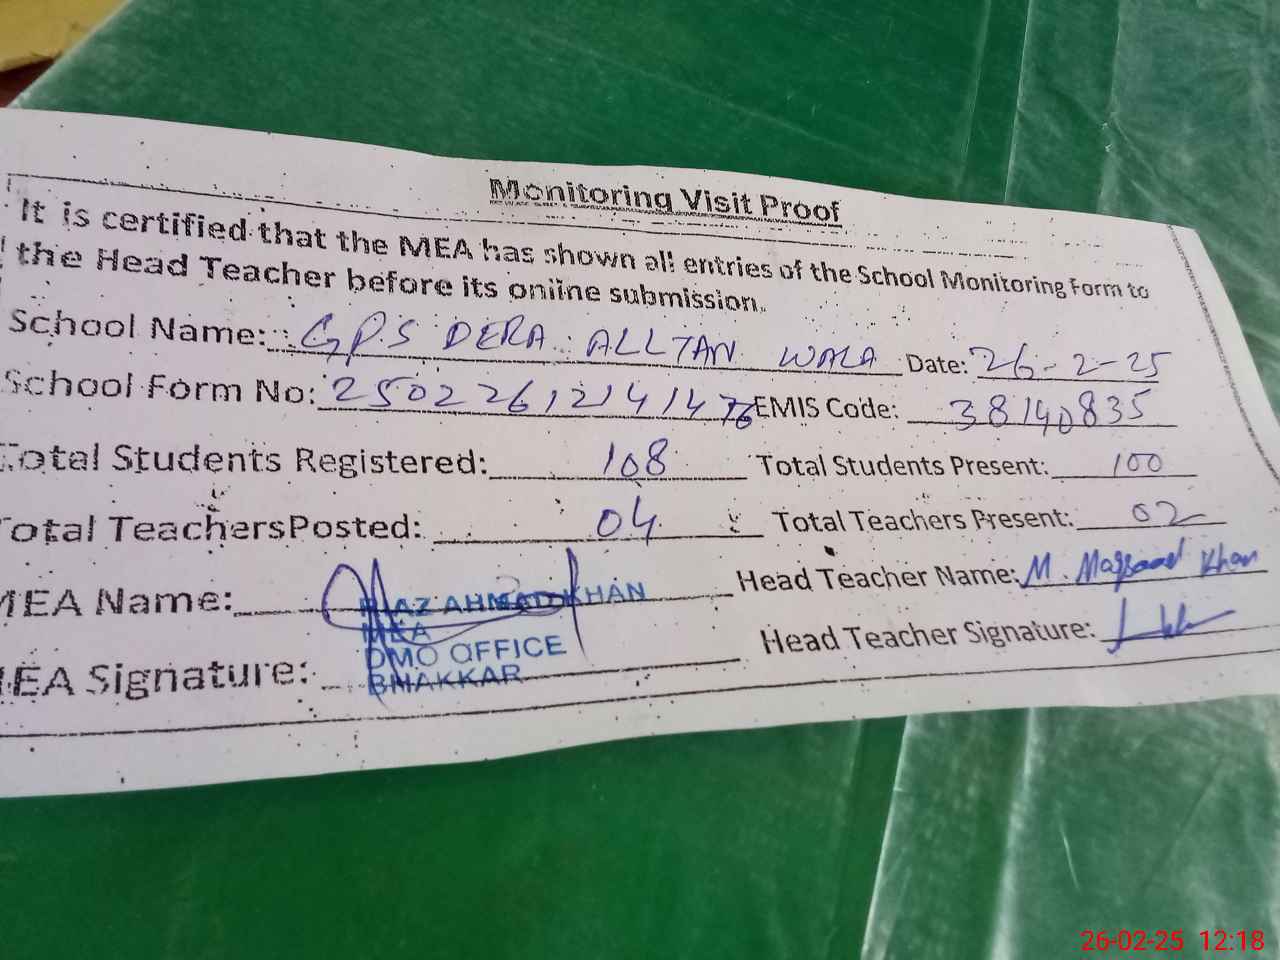 Monitoring Visit Proof
It is certified that the MEA has shown all entries of the School Monitoring Form to
the Head Teacher before its online submission.
School Name: GPS DERA ALLTAN WALA Date: 26-2-25
School Form No: EMIS Code: 38140835
Total Students Registered: 108 Total Students Present: 100
Total TeachersPosted: 04 Total Teachers Present: 02
MEA Name: RIAZ AHMAD KHAN Head Teacher Name: M. Maqsood Khan
MEA
MEA Signature: DMO OFFICE Head Teacher Signature:
BHAKKAR
26-02-25 12:18